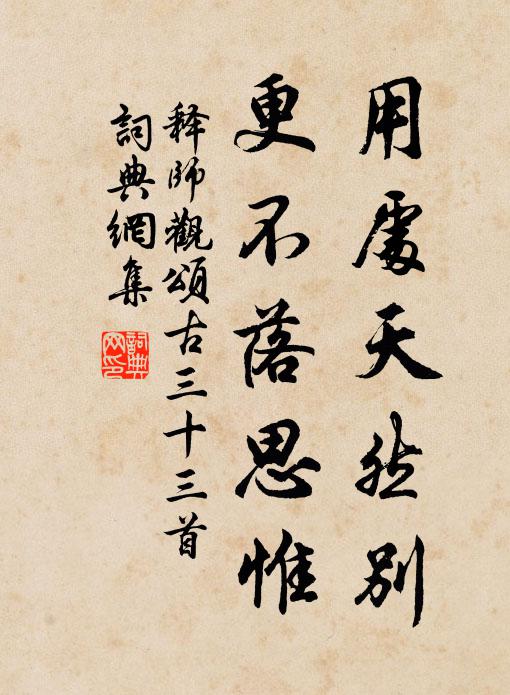 用處天然别
更不落思惟
释師觀頌古三十三首
詞典網集
詞典网印